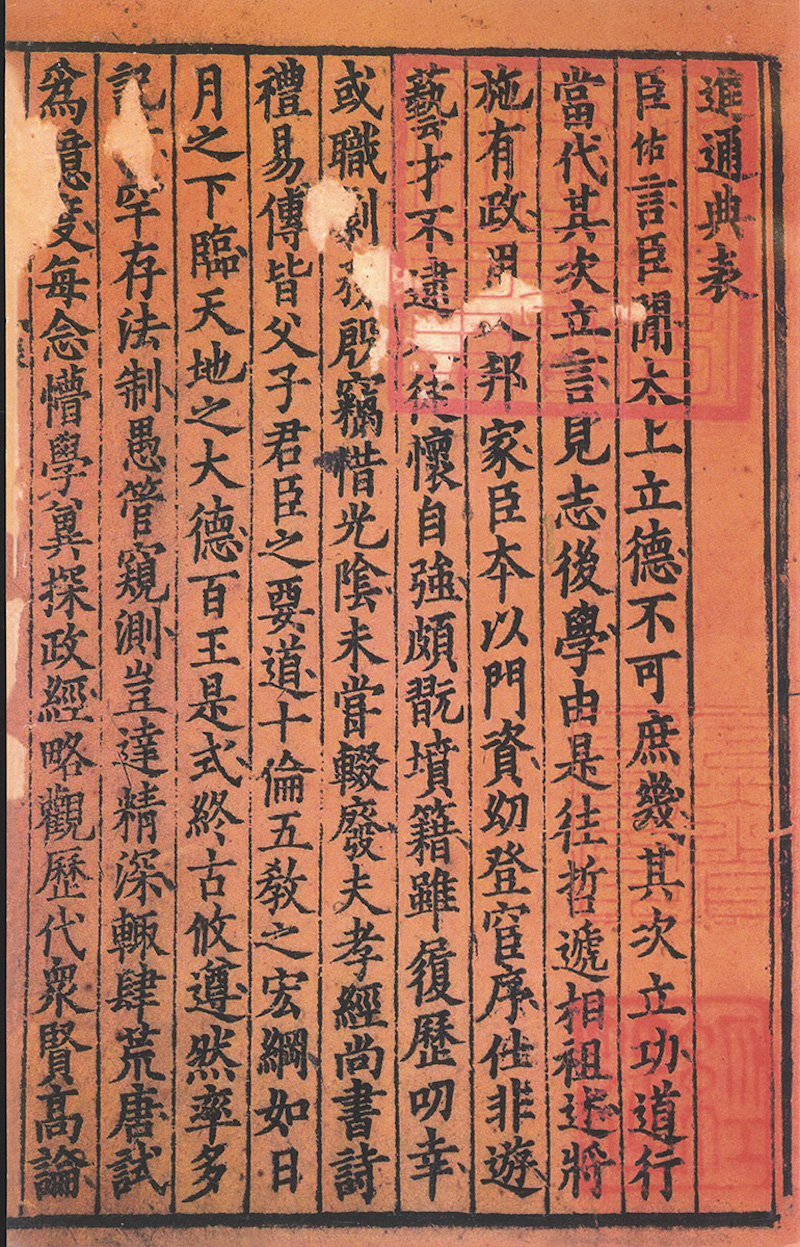 進通典表
臣佑言臣聞太上立德不可庶幾其次立功道行
當代其次立言見志後學由是徃哲遞相祖述將
施有政用乂邦家臣夲以門資㓜登官序仕非遊
藝才不逮徒懷自強頗翫墳籍雖履歷叨幸
或職劇務殷竊惜光陰未嘗輟廢夫孝經尚書詩
禮易傳皆父子君臣之要道十倫五教之宏綱如日
月之下臨天地之大德百王是式終古攸遵然率多
記罕存法制愚管窺測豈達精深輒肆荒唐試
為臆度每念懵學冀探政經略觀歷代衆賢高論